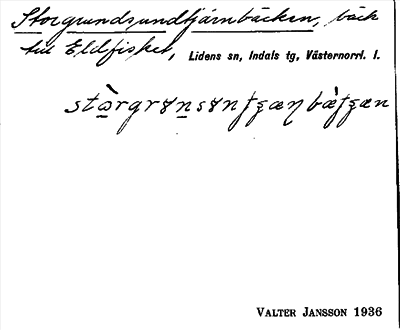 Storgrundsundtjärnbäcken, bäck
till Eldfisket, Lidens sn, Indals tg, Västernorrl. l.
stò̠rgrɤn̠sɤnʃʒæŋbæ̀ʃʒæn
VALTER JANSSON 1936